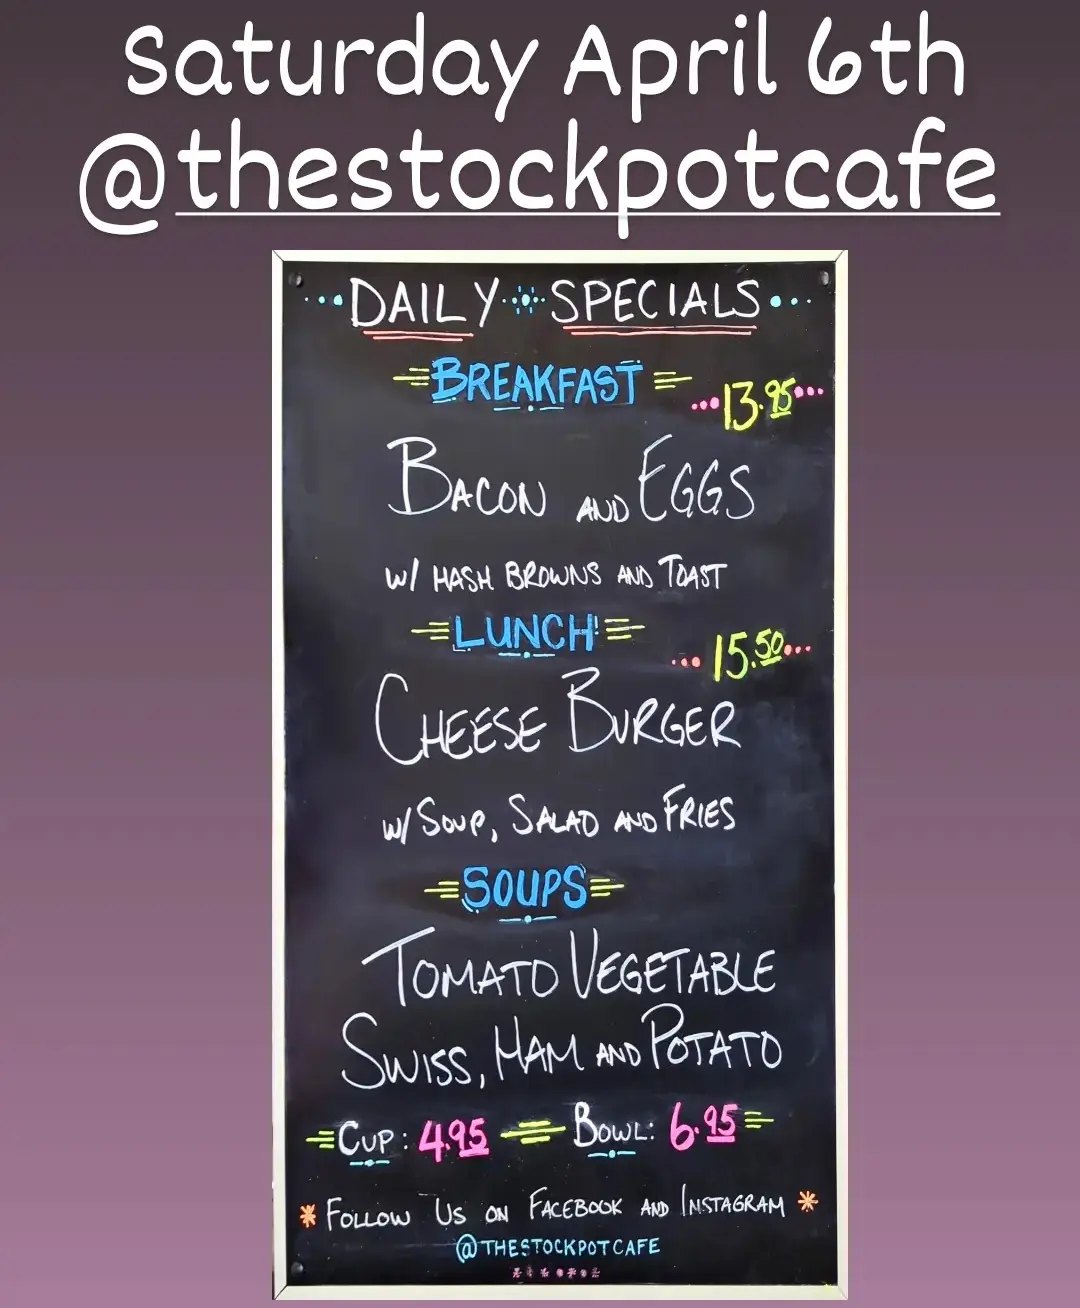 Saturday April 6th
@thestockpotcafe
DAILY SPECIALS
BREAKFAST
13.95
BACON AND EGGS
W/ HASH BROWNS AND TOAST
LUNCH
15.50
CHEESE BURGER
W/ SOUP, SALAD AND FRIES
SOUPS
TOMATO VEGETABLE
SWISS, HAM AND POTATO
CUP: 4.95 BOWL: 6.95
FOLLOW US ON FACEBOOK AND INSTAGRAM
@THESTOCKPOTCAFE